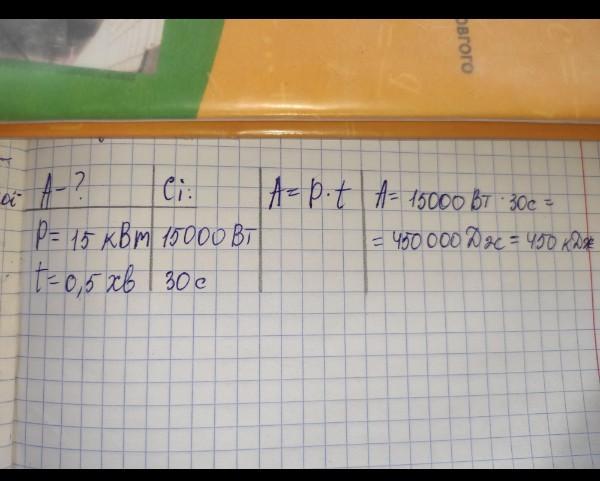 овгого
A - ?
Сі:
A = P · t
A = 15000 Вт · 30с =
P = 15 кВт
15000 Вт
= 450 000 Дж = 450 кДж
t = 0,5 хв
30 с